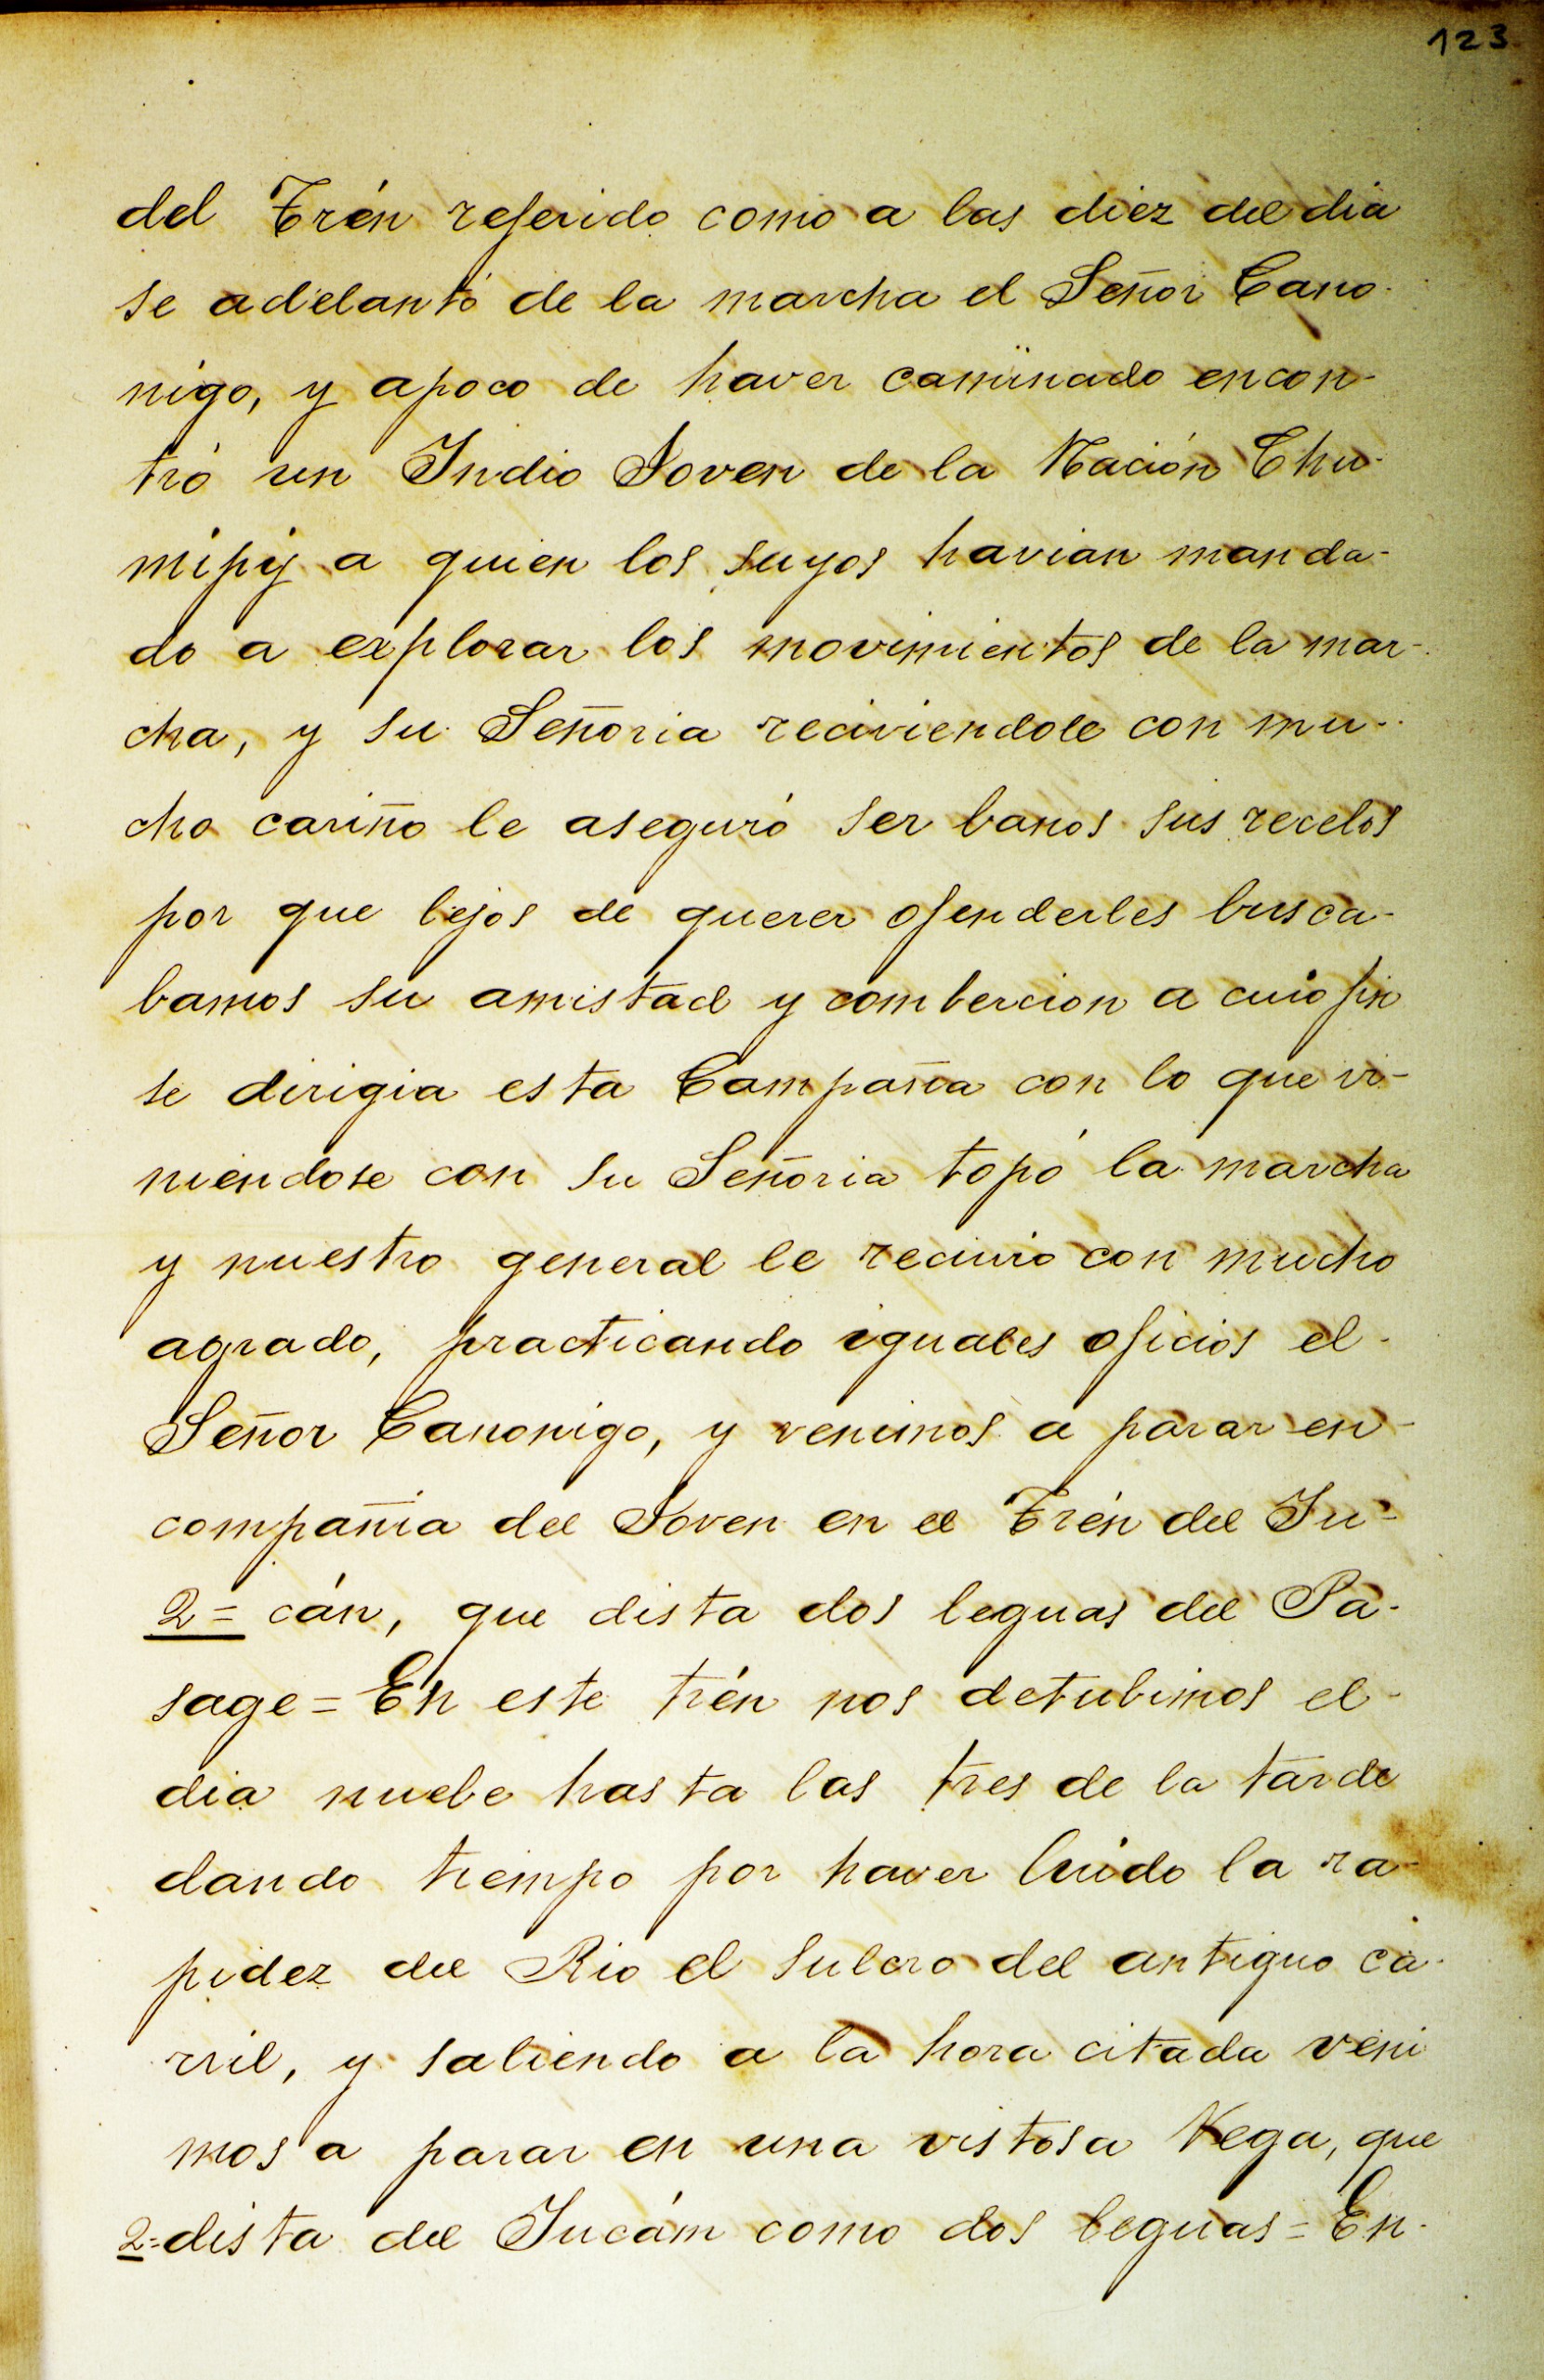 123
del Trén referido como a las diez del dia
se adelantó de la marcha el Señor Cano-
nigo, y apoco de haver caminado encon-
tró un Indio Joven de la Nación Chu-
mipÿ a quien los suyos havian manda-
do a explorar los movimientos de la mar-
cha, y su Señoria reciviendole con mu-
cho cariño le aseguró ser banos sus recelos
por que lejos de querer ofenderles busca-
bamos su amistad y combercion a cuio fin
se dirigia esta Campaña con lo que vi-
niendose con su Señoria topó la marcha
y nuestro general le recivio con mucho
agrado, practicando iguales oficios el-
Señor Canonigo, y venimos a parar en-
compañia del Joven en el Trén del Ju-
2= cán, que dista dos leguas del Pa-
sage = En este trén nos detubimos el-
dia nuebe hasta las tres de la tarde
dando tiempo por haver luido la ra-
pidez del Rio el sulcro del antiguo ca-
rril, y saliendo a la hora citada veni
mos a parar en una vistosa Vega, que
2= dista del Jucám como dos leguas = En-